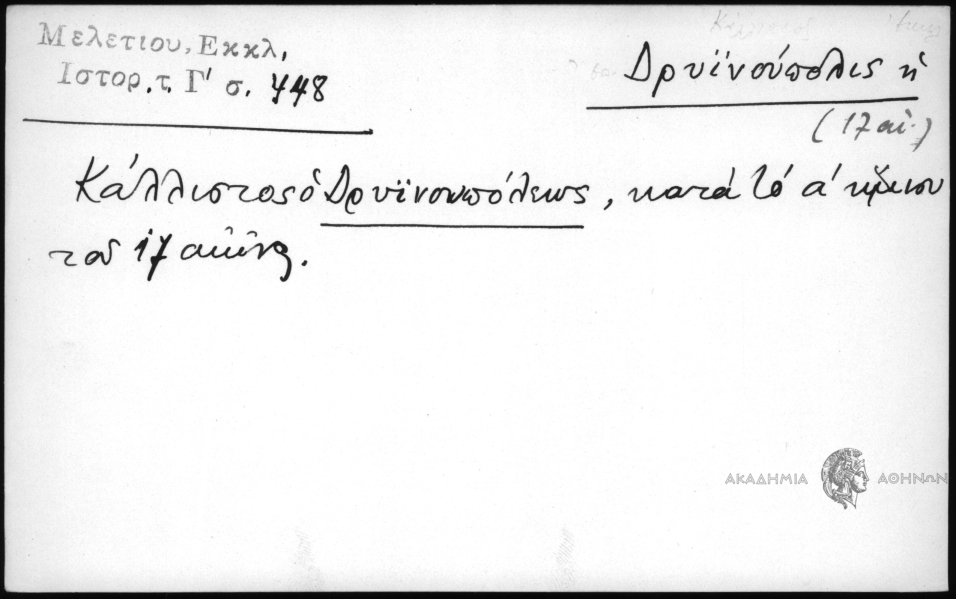 Μελετίου, Εκκλ,
Ιστορ. τ. Γ' σ. 448
Δρυϊνούπολις ἡ
(17 αἰ.)
Κάλλιστος ὁ Δρυϊνουπόλεως, κατὰ τὸ α' ἥμισυ
τοῦ 17 αἰῶνος.
ΑΚΑΔΗΜΙΑ ΑΘΗΝΩΝ